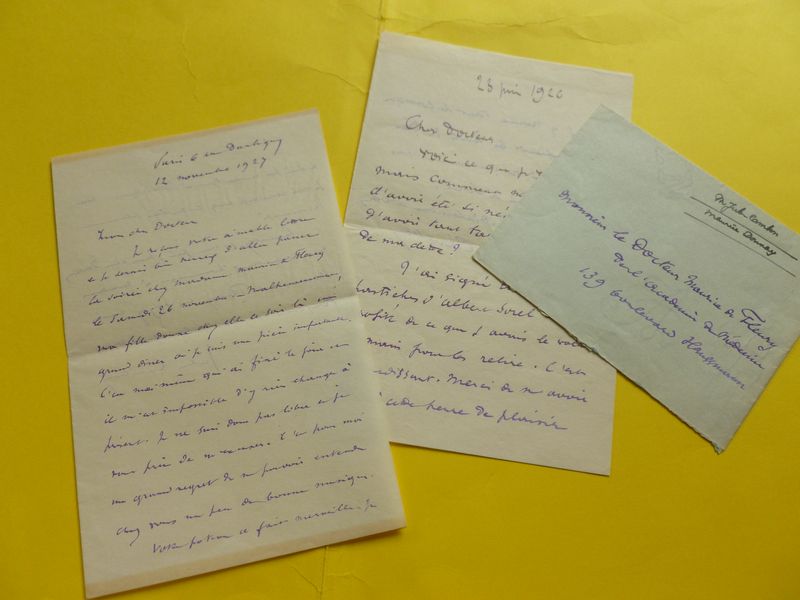 12 novembre 1927
Mon cher Docteur
Je reçois votre aimable lettre
et je serais bien heureux d'aller passer
la soirée chez Madame Maurice de Fleury
le Samedi 26 novembre. Malheureusement,
ma fille donne chez elle ce soir là un
grand dîner où je suis une pièce importante,
C'est moi-même qui ai fixé le jour et
il m'est impossible d'y rien changer à
présent. Je ne suis donc pas libre et je
vous prie de m'excuser. C'est pour moi
un grand regret de ne pouvoir entendre
chez vous un peu de bonne musique.
Votre potion a fait merveille. Je
23 juin 1920
Cher Docteur
Voici ce que
mais comment
d'avoir été si
d'avoir tant
de ma dette ?
J'ai signé
pastiches d'Albert Sorel
profité de ce que j'avais le volume
mains pour les relire. C'est
Merci de m'avoir
cette heure de plaisir
Maurice Donnay
Monsieur le Docteur Maurice de Fleury
de l'Académie de Médecine
139 boulevard Haussmann